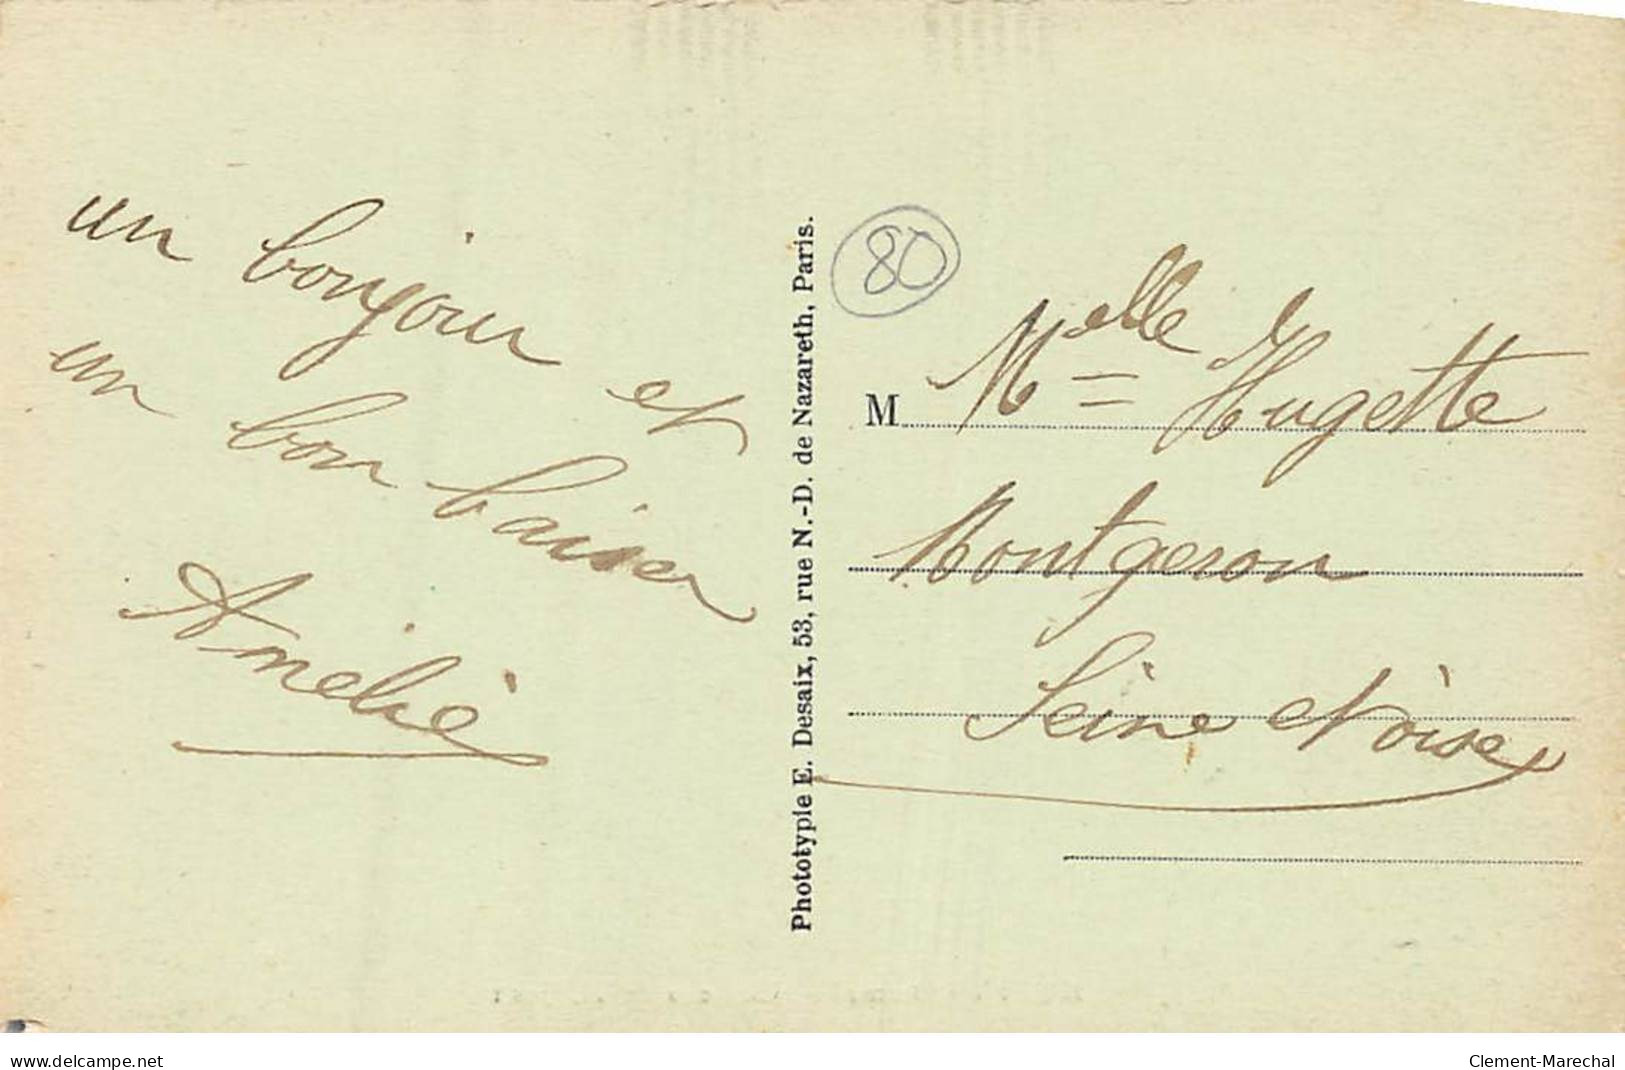 un bonjour et
un bon baiser
Amélie
Phototypie E. Desaix, 53, rue N.-D. de Nazareth, Paris.
80
M Melle Hugette
Montgeron
Seine et Oise
www.delcampe.net
Clement-Marechal